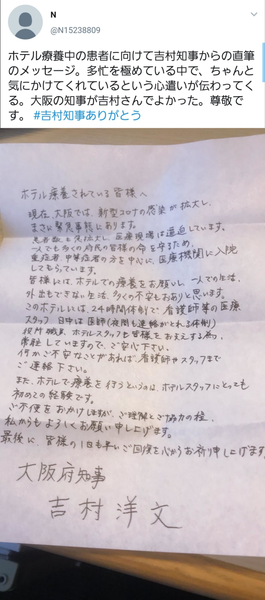 N
@N15238809
ホテル療養中の患者に向けて吉村知事からの直筆
のメッセージ。多忙を極めている中で、ちゃんと
気にかけてくれているという心遣いが伝わってく
る。大阪の知事が吉村さんでよかった。尊敬で
す。 #吉村知事ありがとう
ホテル療養されている皆様へ
現在、大阪では、新型コロナの感染が拡大し、
まさに緊急事態にあります。
も急拡大し、医療現場は逼迫しています。
一人でも多くの府民の皆様の命を守るため、
重症者、中等症者の方を中心に、医療機関に入院
してもらっています。
皆様には、ホテルでの療養をお願いし、一人での生活、
外出もできない生活、多くの不安もおありと思います。
このホテルは、24時間体制で、看護師等の医療
スタッフ、日中は医師(夜間も連絡がとれる体制)
役所職員、ホテルスタッフも皆様をお支えする為、
常駐していますので、ご安心下さい。
何かご不安なことがあれば、看護師やスタッフまで
ご連絡下さい。
また、ホテルで療養を行うというのは、ホテルスタッフにとっても
初めての経験です。
ご不便をおかけしますが、ご理解とご協力の程、
私からもよろしくお願い申し上げます。
最後に、皆様の1日も早いご回復を心からお祈り申し上げます。
大阪府知事
吉村洋文